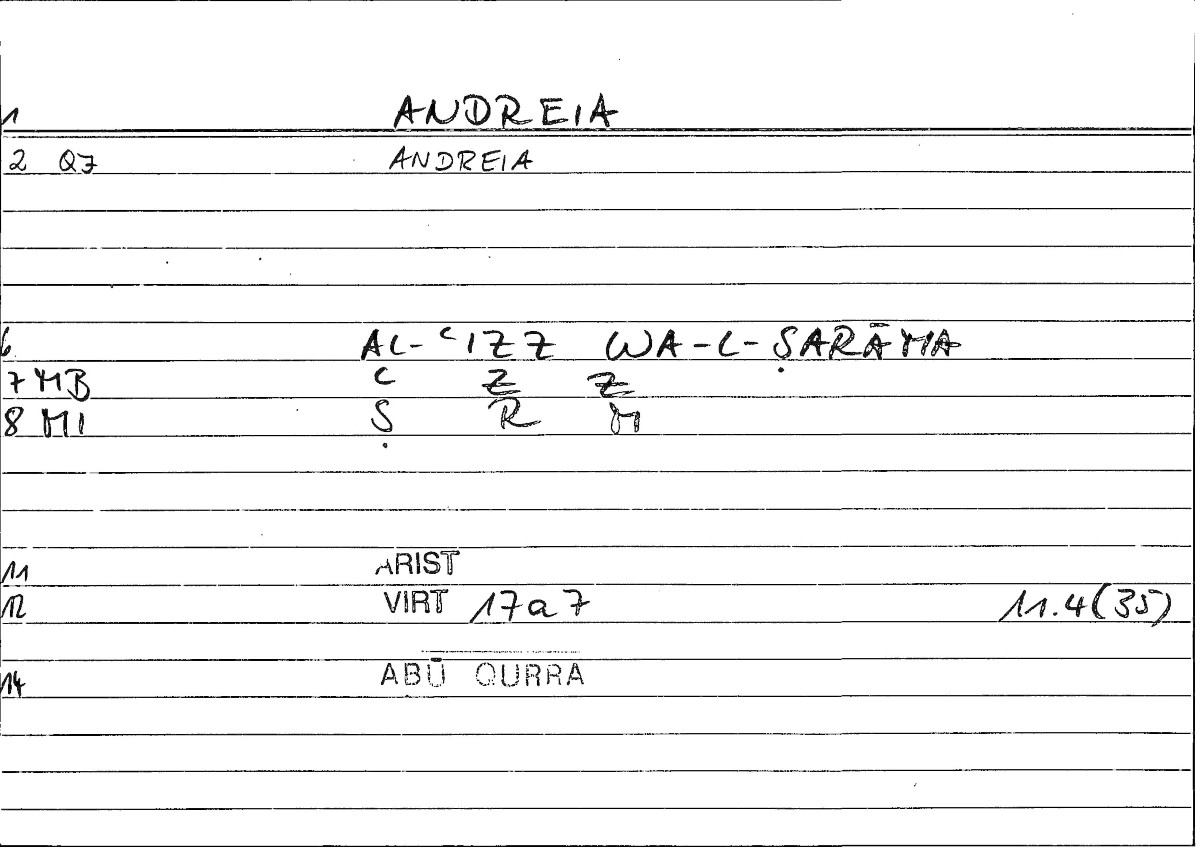 1 ANDREIA
2 Q7 ANDREIA
6 AL-ʿIZZ WA-L-ṢARĀMA
7 MB ʿ Z Z
8 MI Ṣ R M
11 ARIST
12 VIRT 17a7 11.4(35)
14 ABŪ QURRA